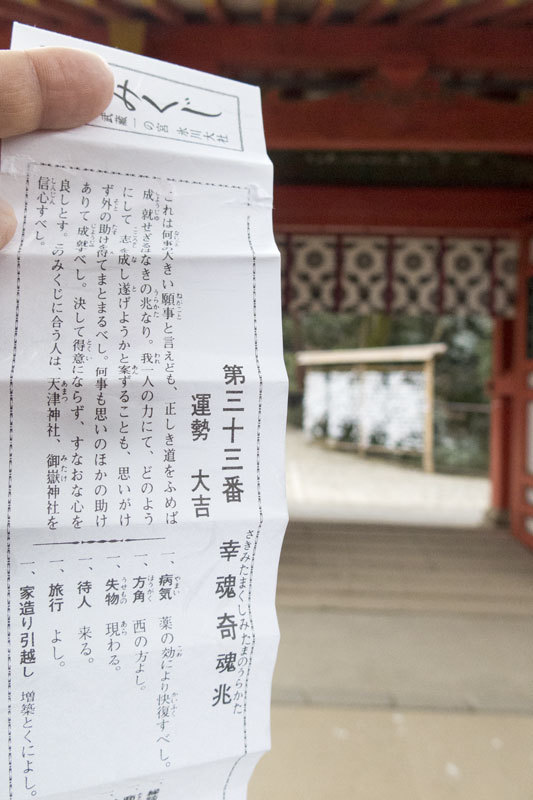 みくじ
武蔵一の宮 氷川大社
第三十三番
運勢 大吉
幸魂奇魂兆
さきみたまくしみたまのうらかた
これは何事大きい願事と言えども、正しき道をふめば
成就せざるはなきの兆なり。我一人の力にて、どのよう
にして志を成し遂げようかと案ずることも、思いがけ
ず外の助け得てまとまるべし。何事も思いのほかの助け
ありて成就べし。決して得意にならず、すなおな心を
良しとす。このみくじに合う人は、天津神社、御嶽神社を
信心すべし。
一、病気 薬の効により快復すべし。
一、方角 西の方よし。
一、失物 現わる。
一、待人 来る。
一、旅行 よし。
一、家造り引越し 増築とくによし。